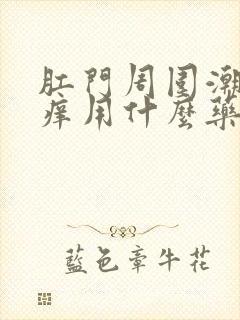 肛門周圍潮
痒用什麼藥
藍色章牛花